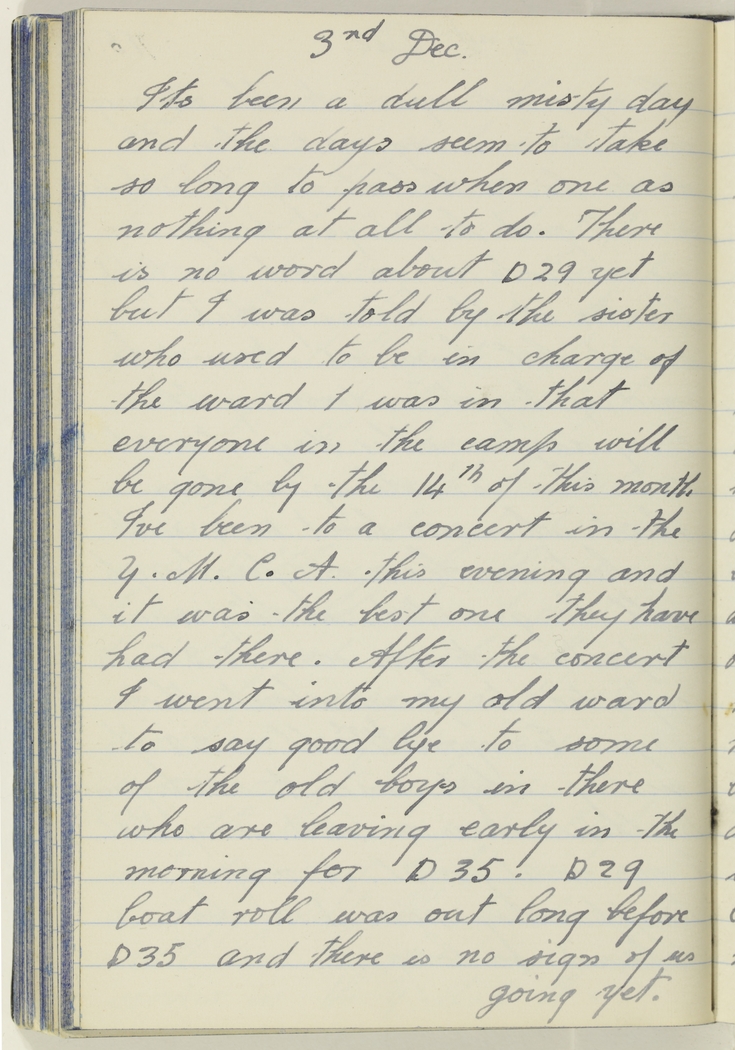 3rd Dec.
Its been a dull misty day
and the days seem to take
so long to pass when one as
nothing at all to do. There
is no word about D29 yet
but I was told by the sister
who used to be in charge of
the ward I was in that
everyone in the camp will
be gone by the 14th of this month.
I've been to a concert in the
Y. M. C. A. this evening and
it was the best one they have
had there. After the concert
I went into my old ward
to say good bye to some
of the old boys in there
who are leaving early in the
morning for D35. D29
boat roll was out long before
D35 and there is no sign of us
going yet.